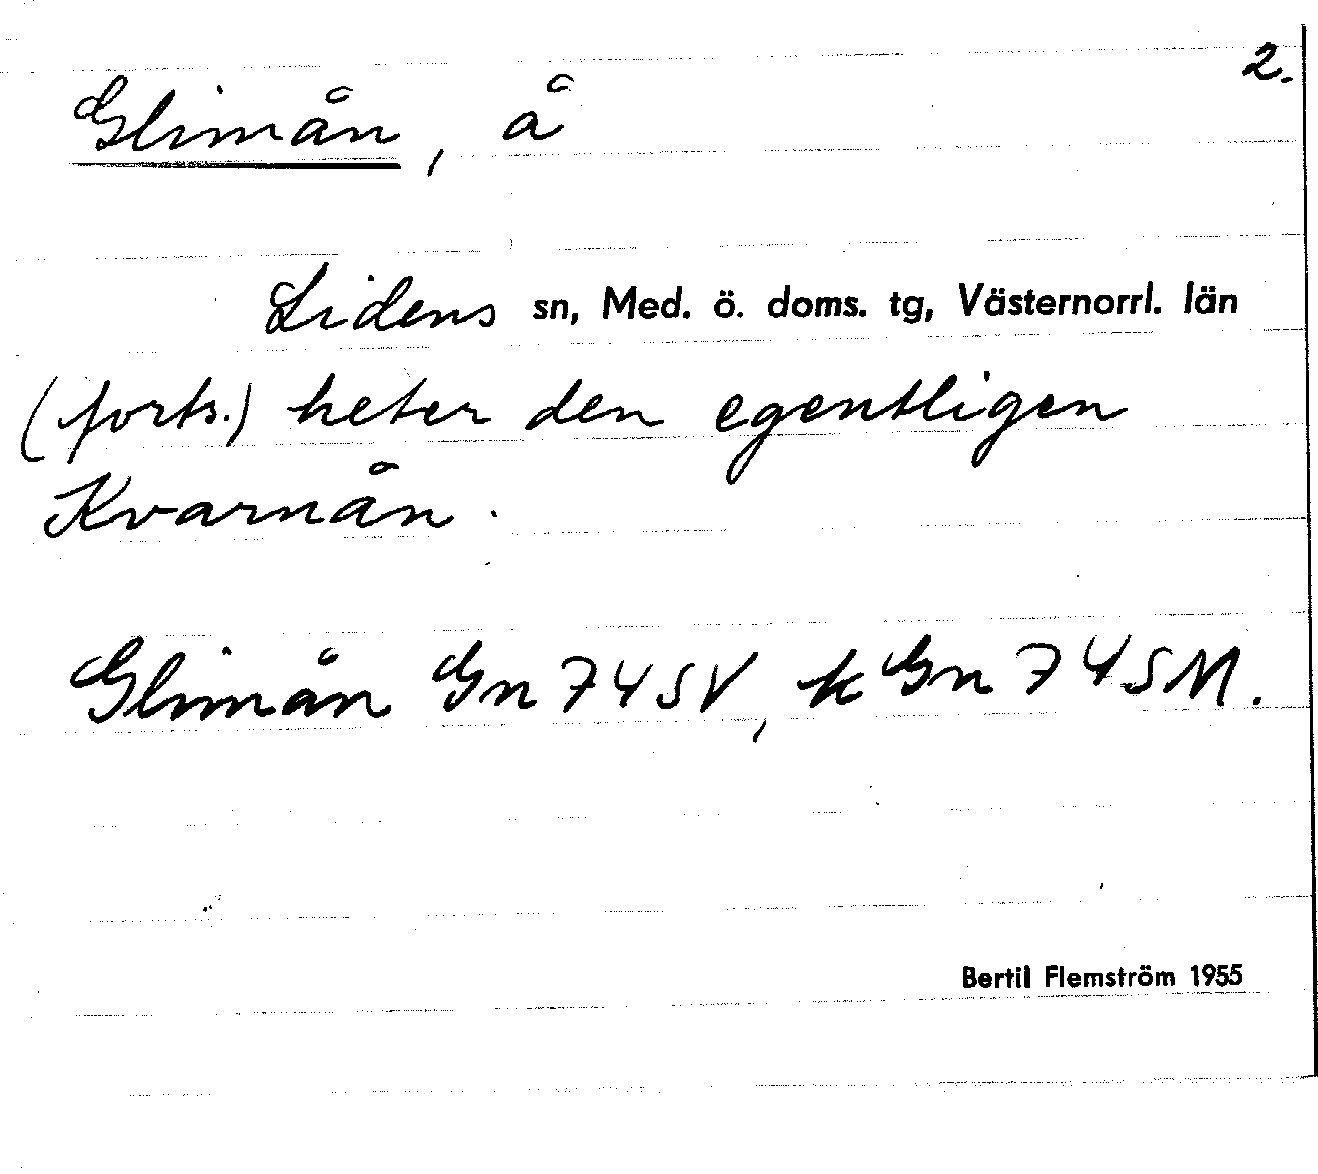 2.
Glimån, å
Lidens sn, Med. ö. doms. tg, Västernorrl. län
(forts.) heter den egentligen
Kvarnån.
Glimån Gn 74 SV, k Gn 74 SM.
Bertil Flemström 1955